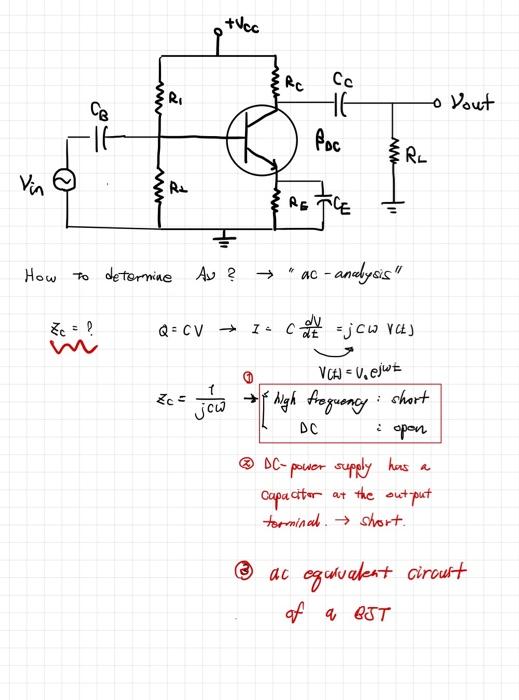 +Vcc
R1
Rc
Cc
CB
Vout
βDC
RL
Vin
R2
RE
CE
How to determine Av ? → "ac-analysis"
Zc = ?
Q = CV → I = C dV/dt = jCω V(t)
V(t) = V₀ejωt
①
Zc = 1/jCω → { high frequency : short
DC : open
② DC-power supply has a
capacitor at the out-put
terminal. → short.
③ ac equivalent circuit
of a BJT